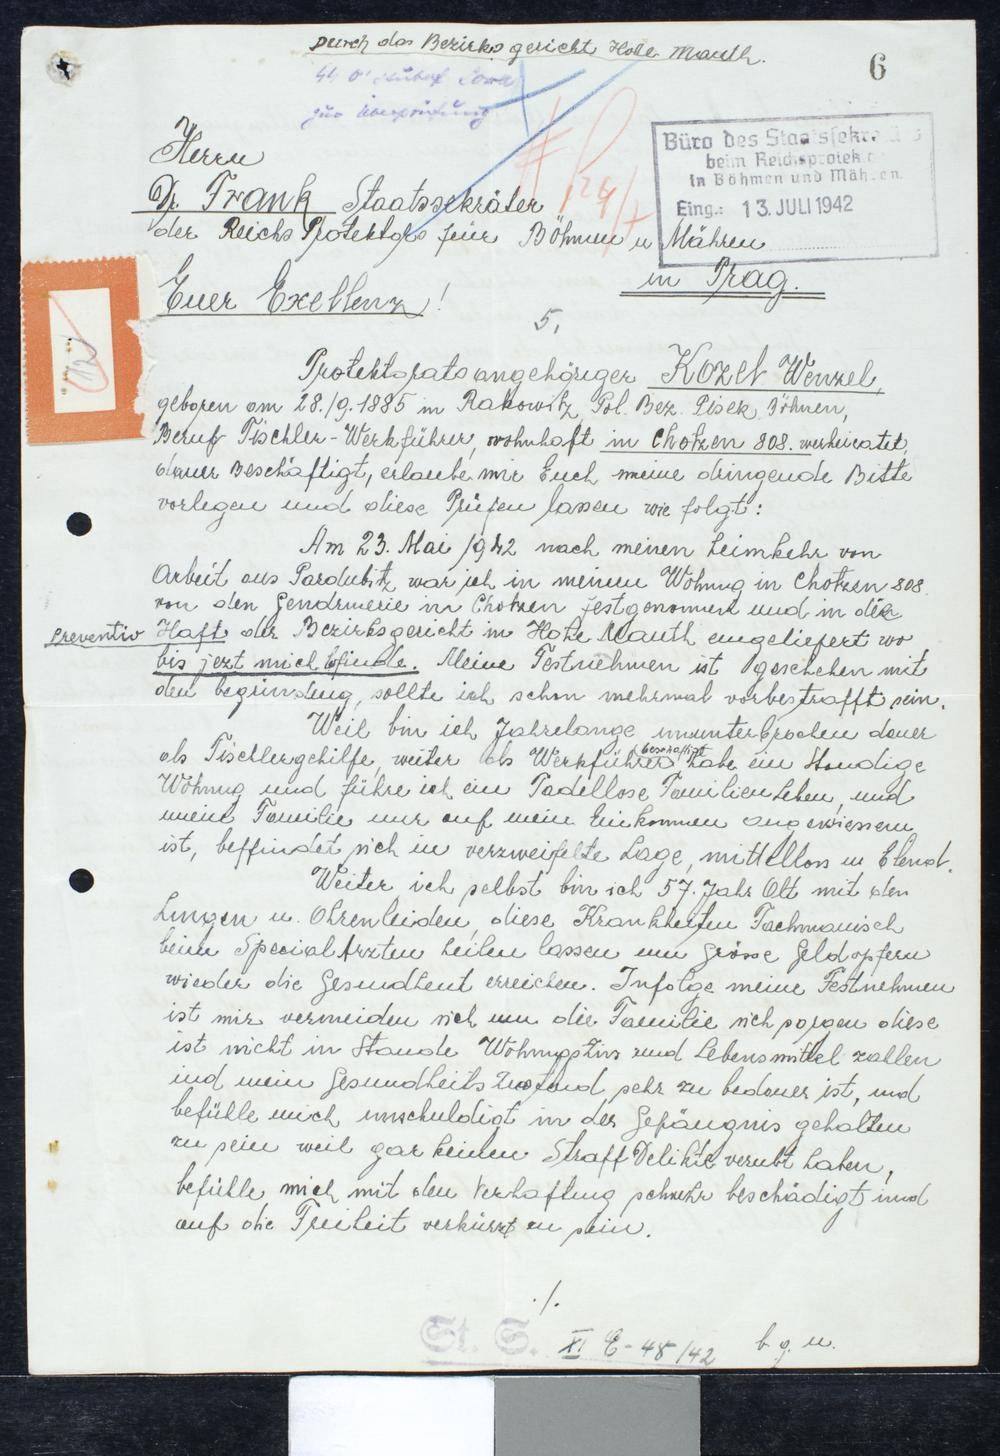 Durch das Bezirksgericht Hohe Mauth.
6
zur Überprüfung
Herrn
Dr. Frank Staatssekräter
der Reichs Protektors für Böhmen u Mähren
in Prag.
Büro des Staatssekretärs
beim Reichsprotektor
in Böhmen und Mähren.
Eing.: 13. JULI 1942
Euer Exellenz!
5.
Protektoratsangehöriger Kozel Wenzel,
geboren am 28./9. 1885 in Rakowitz, Pol. Bez. Pisek Böhmen,
Beruf Tischler-Werkführer, wohnhaft in Chotzen 808. verheiratet,
dauer Beschäftigt, erlaube mir Euch meine dringende Bitte
vorlegen und diese Prüfen lassen wie folgt:
Am 23. Mai 1942 nach meinen Heimkehr von
Arbeit aus Pardubitz, war ich in meinem Wohnung in Chotzen 808.
von den Gendrmerie in Chotzen festgenommen und in der
Preventiv Haft der Bezirksgericht in Hohe Mauth eingeliefert wo
bis jezt mich befinde. Meine Festnehmen ist geschehen mit
den begründung, sollte ich schon mehrmal vorbestrafft sein.
Weil bin ich Jahrelange ununterbrochen dauer
als Tischlergehilfe, weiter als Werkführer beschäftigt habe ein Standige
Wohnung und führe ich ein Tadellose Familienleben, und
meine Familie nur auf mein Einkommen angewiessen
ist, beffindet sich in verzweifelte Lage, mittellos u Elend.
Weiter ich selbst bin ich 57. Jahr Alt mit den
Lungen u. Ohrenleiden, diese Krankheiten Fachmanisch
beim Special Arzten heilen lassen um Grösse Geldopfern
wieder die Gesundheit erreichen. Infolge meine Festnehmen
ist mir vermeiden sich um die Familie sich sorgen diese
ist nicht in Stande Wohnungszins und Lebensmittel zallen
und mein Gesundheits Zustand sehr zu bedauer ist, und
befühle mich unschuldigt in der Gefängnis gehalten
zu sein weil gar keinen Straff Delikte verubt haben,
befühle mich mit den Verhaftung schwehr beschädigt und
auf die Freiheit verkürzt zu sein.
./.
St. S. XI E-48/42 b. g. u.